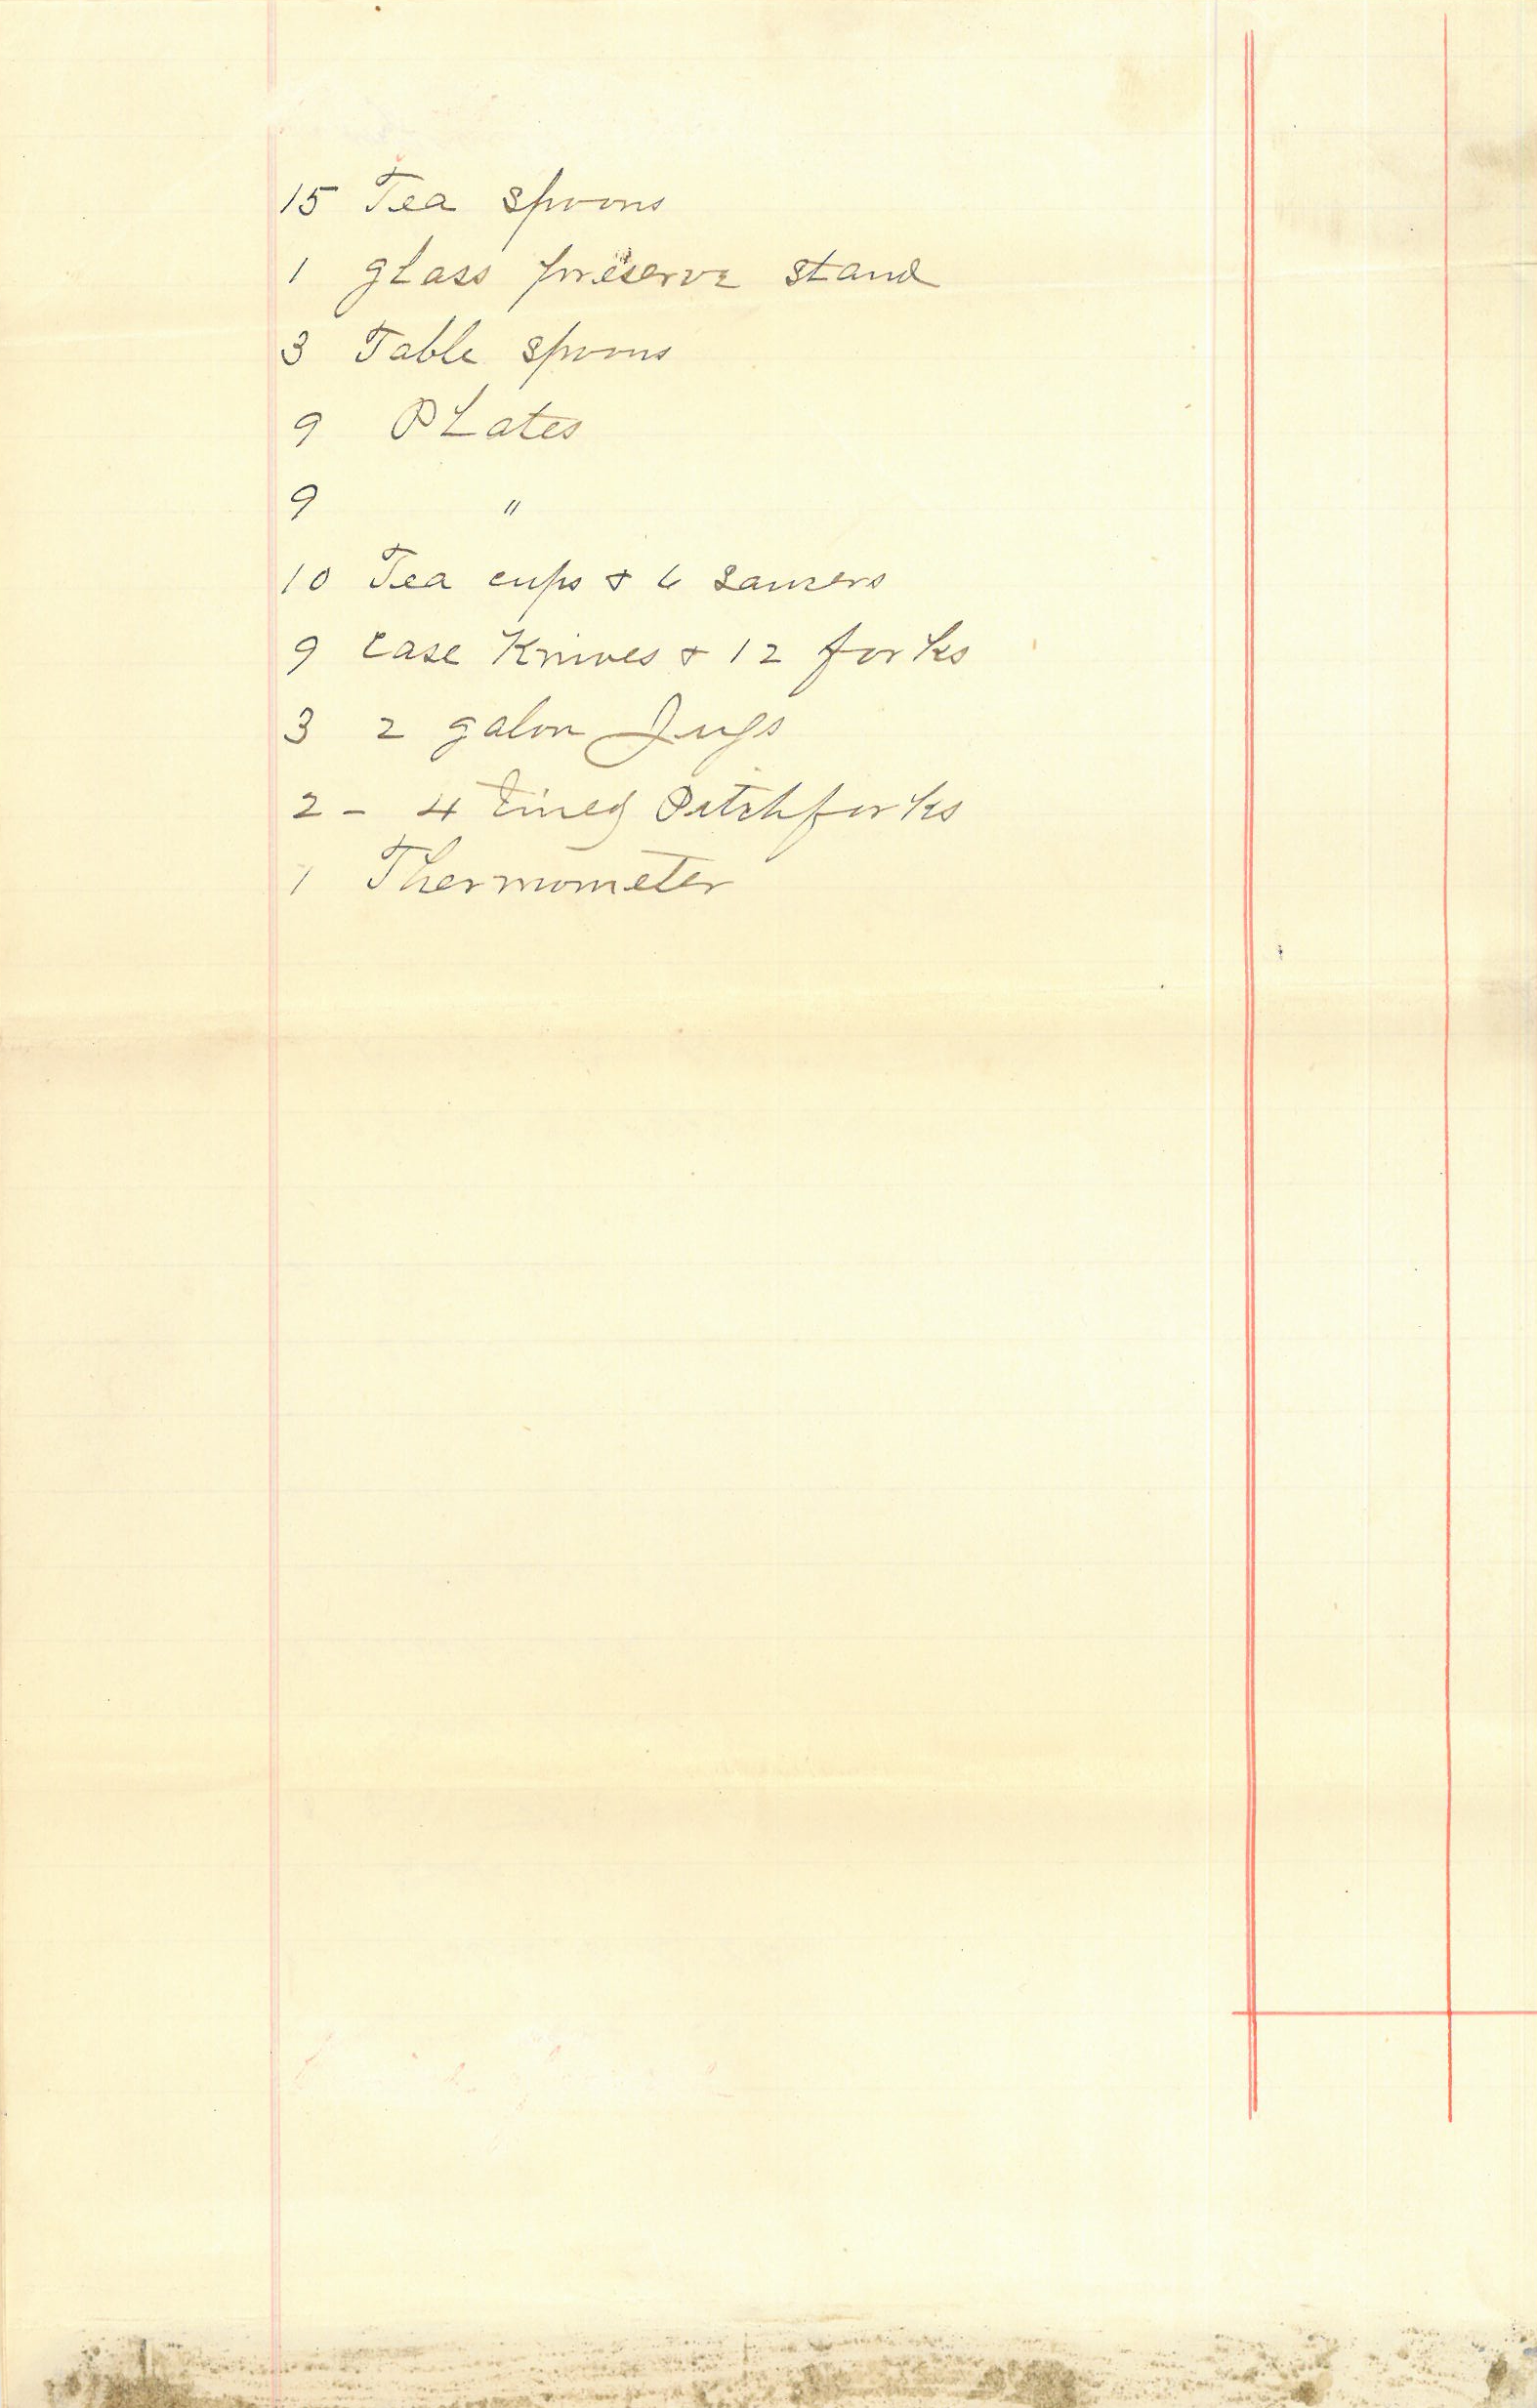 15 Tea spoons
1 glass preserve stand
3 Table spoons
9 PLates
9 "
10 Tea cups & 6 Saucers
9 case Knives & 12 forks
3 2 galon Jugs
2 - 4 tined Pitchforks
1 Thermometer